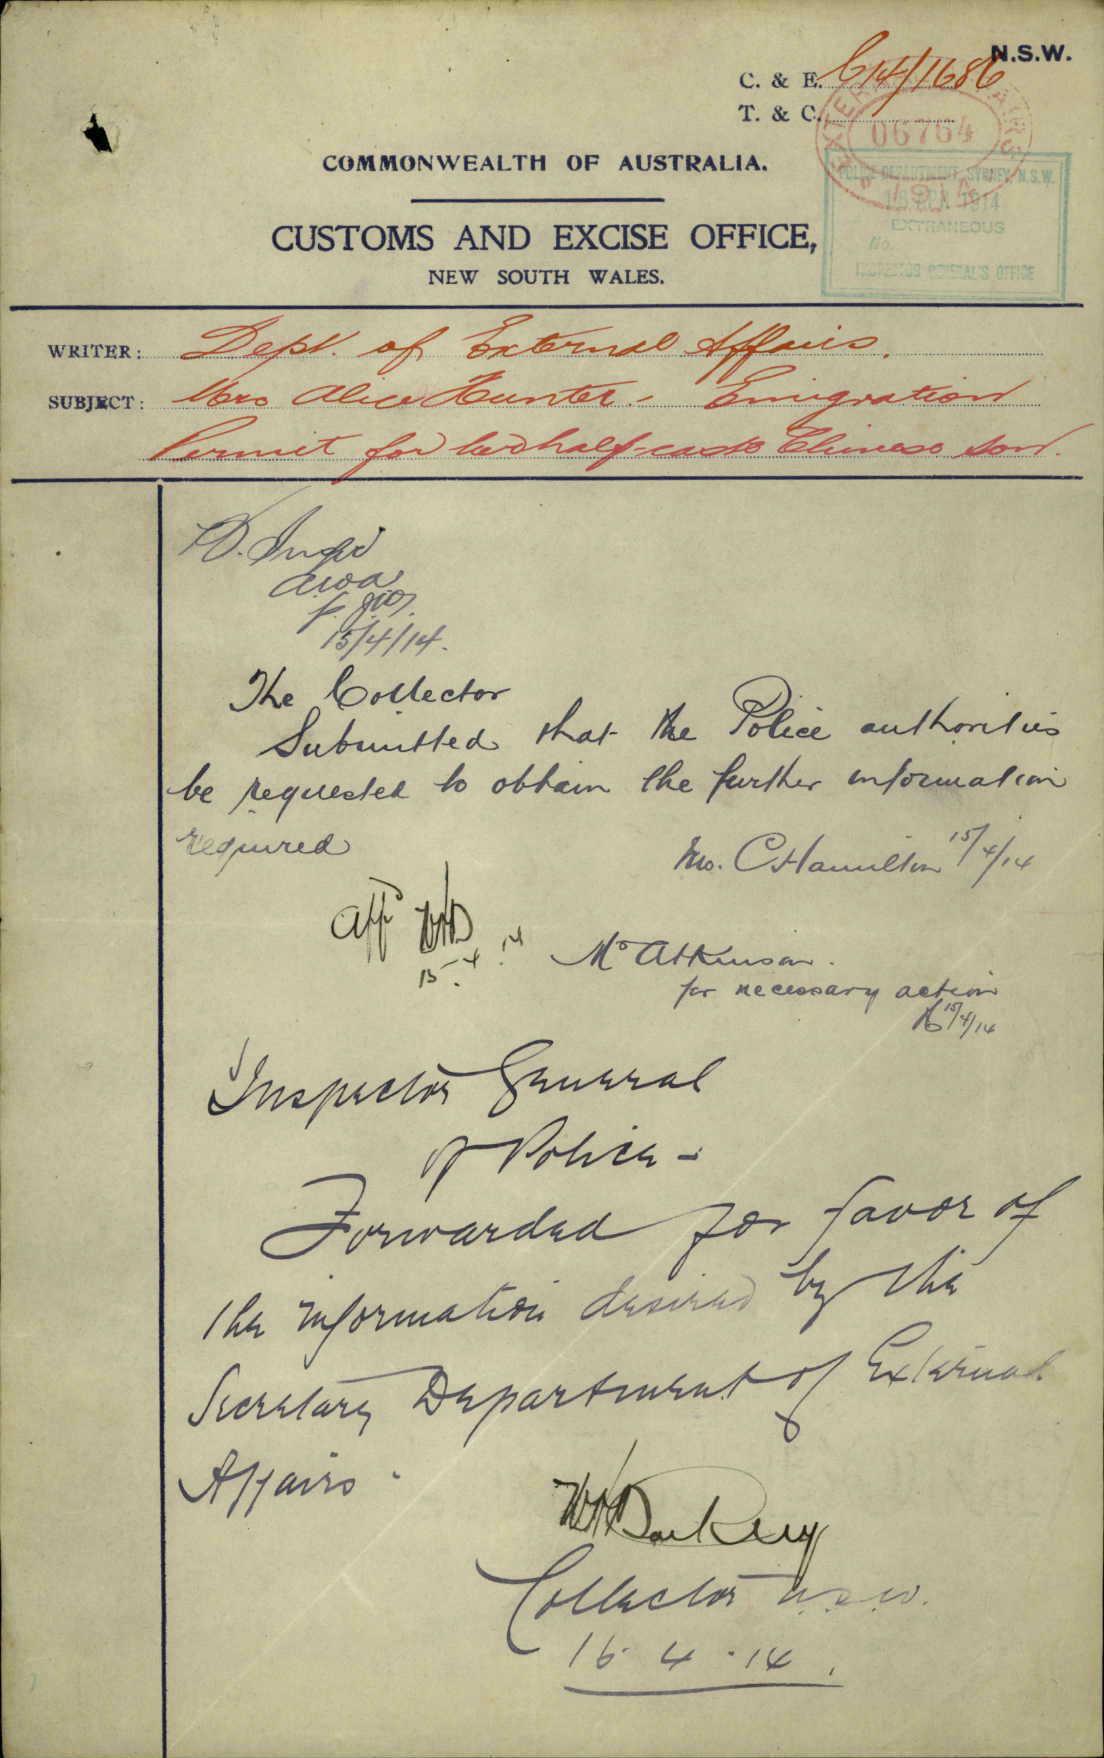 N.S.W.
C. & E. C14/1686
T. & C.
EXTERNAL AFFAIRS
06764
1914
POLICE DEPARTMENT, SYDNEY, N.S.W.
APR 1914
EXTRANEOUS
No.
INSPECTOR GENERAL'S OFFICE
COMMONWEALTH OF AUSTRALIA.
CUSTOMS AND EXCISE OFFICE,
NEW SOUTH WALES.
WRITER: Dept. of External Affairs.
SUBJECT: Mrs Alice Hunter. - Emigration
Permit for her half-caste Chinese son.
15/4/14.
The Collector
Submitted that the Police authorities
be requested to obtain the further information
required
C Hamilton 15/4/14
15-4-14
Mr Atkinson.
for necessary action
15/4/14
Inspector General
of Police -
Forwarded for favor of
the information desired by the
Secretary Department of External
Affairs.
Collector N.S.W.
16.4.14.